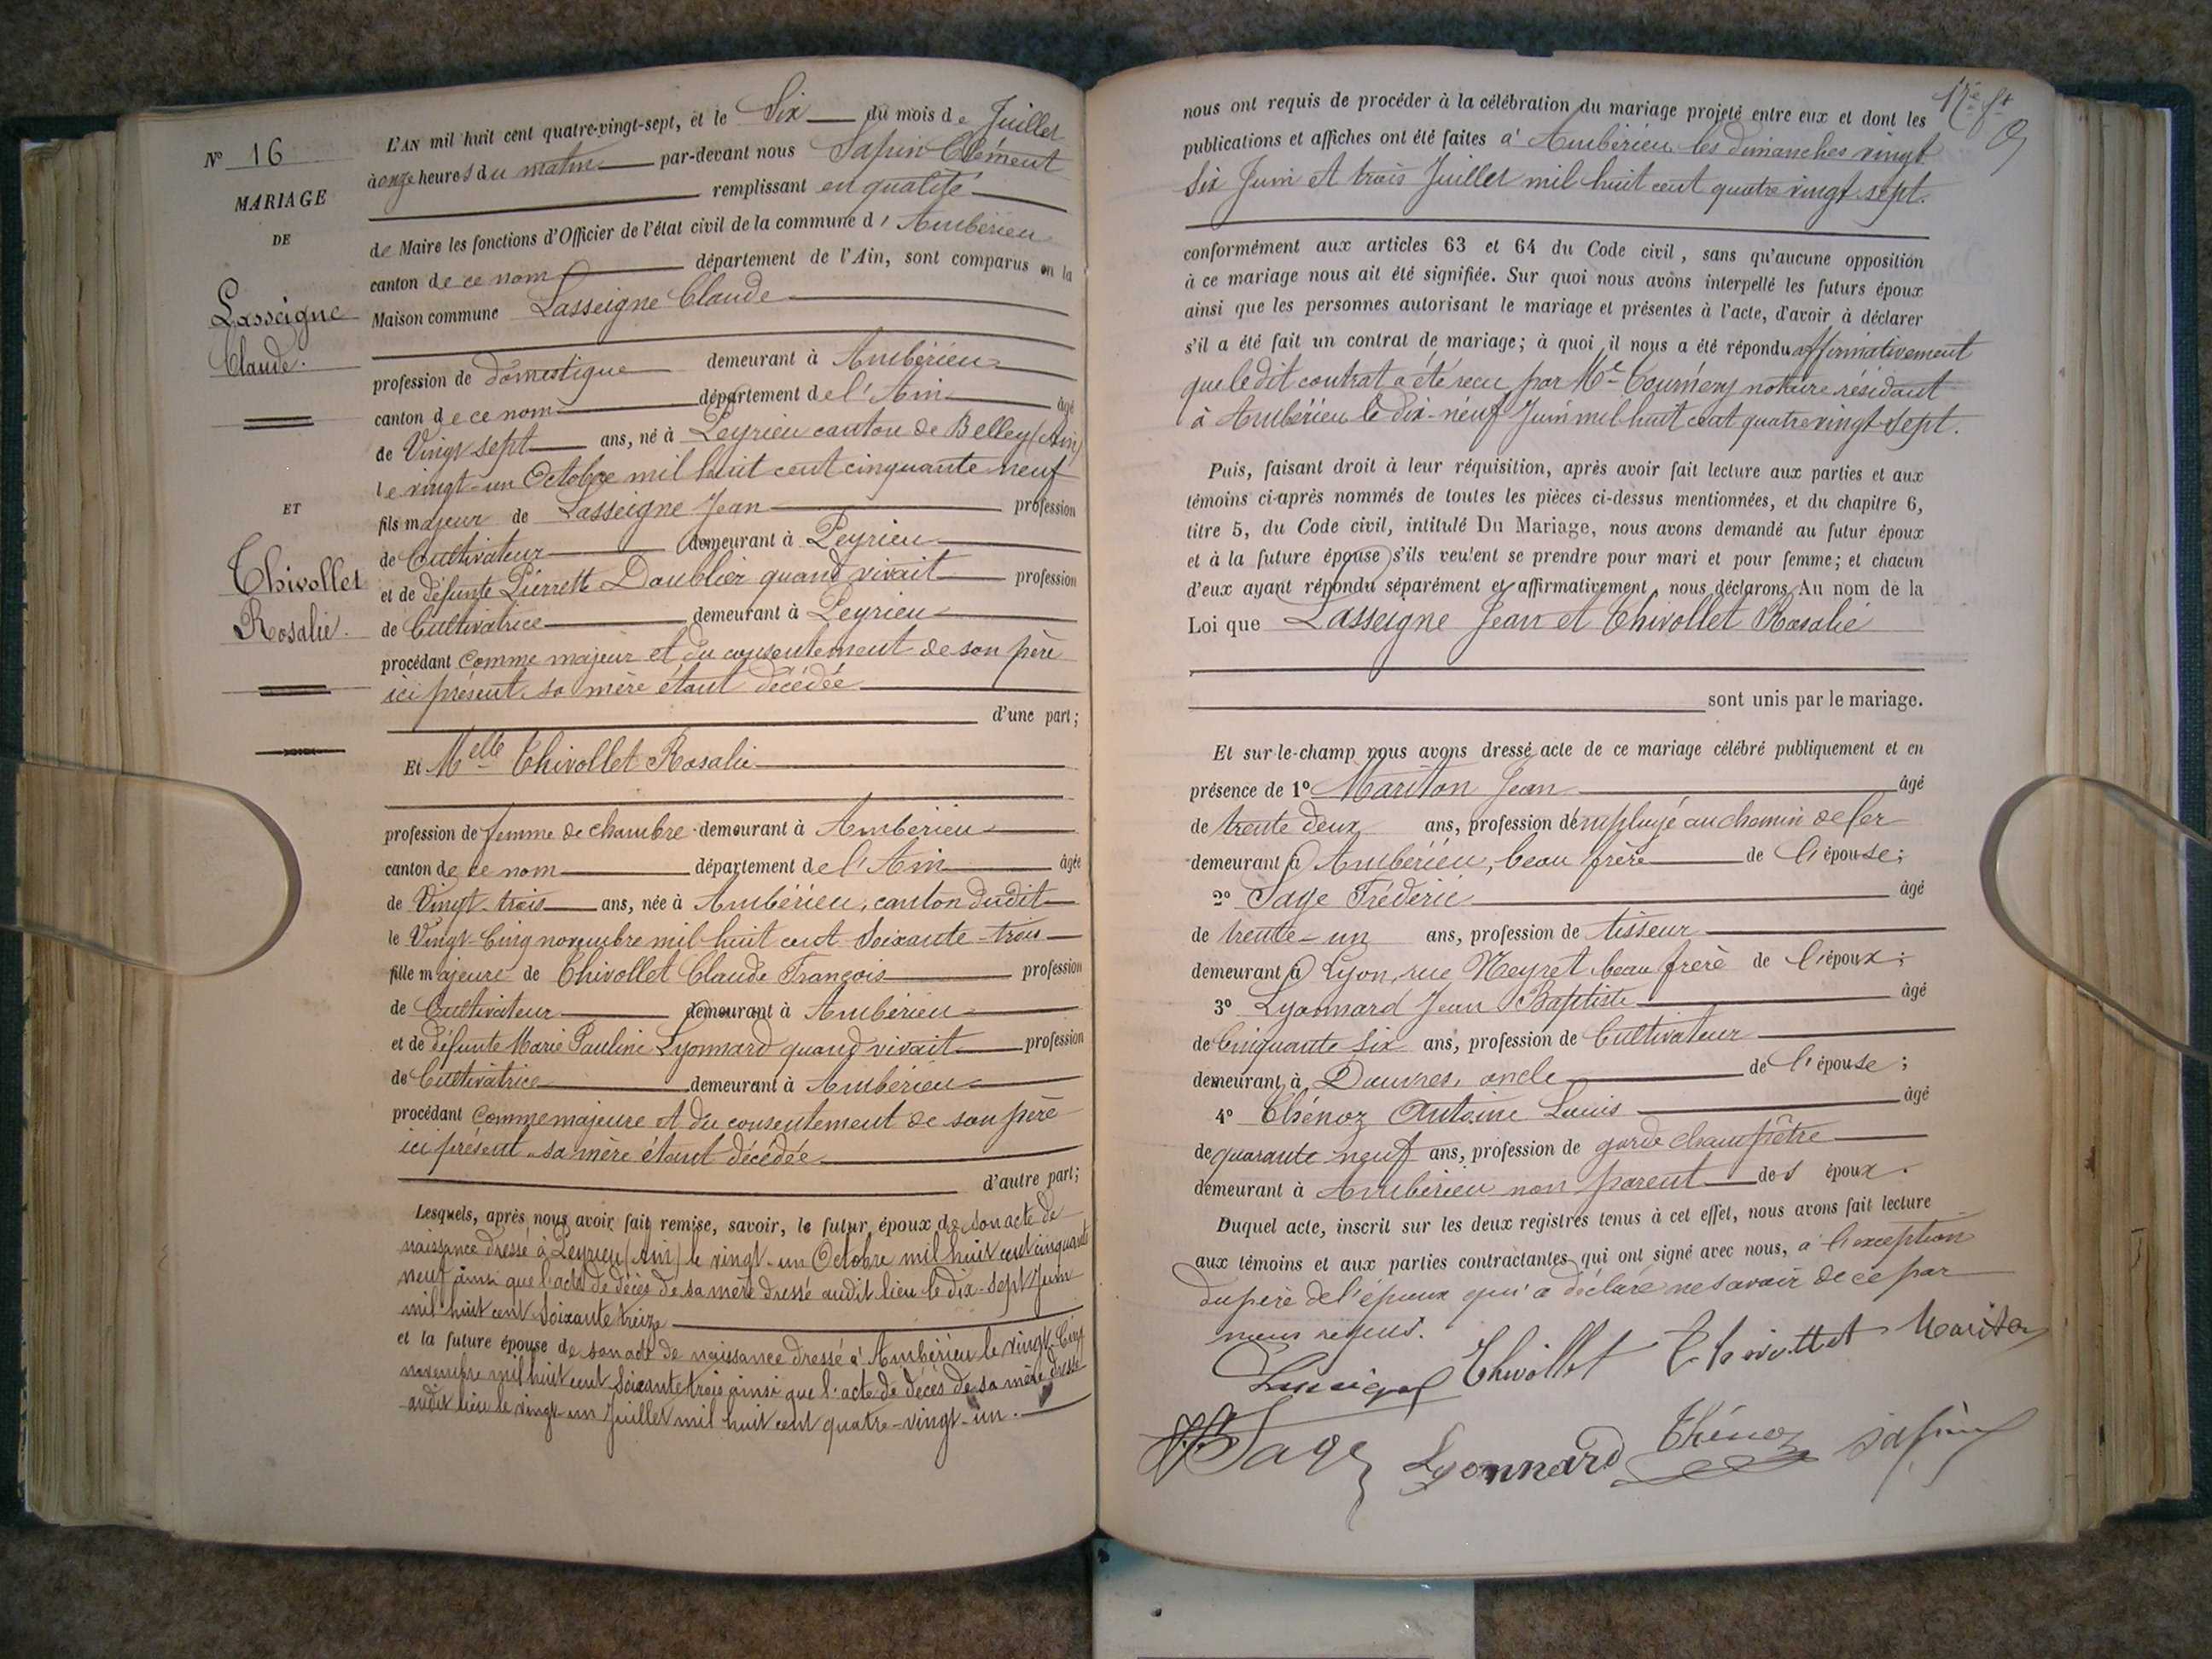 N° 16
MARIAGE
DE
Lasseigne
Claude.
ET
Thivollet
Rosalie.
L'AN mil huit cent quatre-vingt-sept, et le Six du mois de Juillet
à onze heures du matin par-devant nous Sapin Clément
remplissant en qualité
de Maire les fonctions d'Officier de l'état civil de la commune d'Ambérieu
canton de ce nom département de l'Ain, sont comparus en la
Maison commune Lasseigne Claude
profession de domestique demeurant à Ambérieu
canton de ce nom département de l'Ain âgé
de Vingt sept ans, né à Peyrieu canton de Belley (Ain)
le vingt-un Octobre mil huit cent cinquante neuf
fils majeur de Lasseigne Jean profession
de Cultivateur demeurant à Peyrieu
et de défunte Pierrette Doublier quand vivait profession
de Cultivatrice demeurant à Peyrieu
procédant comme majeur et du consentement de son père
ici présent, sa mère étant décédée
d'une part;
Et Melle Thivollet Rosalie
profession de femme de chambre demeurant à Ambérieu
canton de ce nom département de l'Ain âgée
de Vingt-trois ans, née à Ambérieu, canton dudit
le Vingt-Cinq novembre mil huit cent Soixante-trois
fille majeure de Thivollet Claude François profession
de Cultivateur demeurant à Ambérieu
et de défunte Marie Pauline Lyonnard quand vivait profession
de Cultivatrice demeurant à Ambérieu
procédant comme majeure et du consentement de son père
ici présent, sa mère étant décédée
d'autre part;
Lesquels, après nous avoir fait remise, savoir, le futur époux de son acte de
naissance dressé à Peyrieu (Ain) le vingt-un Octobre mil huit cent cinquante
neuf ainsi que l'acte de décès de sa mère dressé audit lieu le dix-sept Juin
mil huit cent Soixante treize
et la future épouse de son acte de naissance dressé à Ambérieu le vingt-Cinq
novembre mil huit cent soixante trois ainsi que l'acte de décès de sa mère dressé
audit lieu le vingt-un Juillet mil huit cent quatre-vingt-un.
nous ont requis de procéder à la célébration du mariage projeté entre eux et dont les
publications et affiches ont été faites à Ambérieu les dimanches vingt
six Juin et trois Juillet mil huit cent quatre vingt sept.
conformément aux articles 63 et 64 du Code civil, sans qu'aucune opposition
à ce mariage nous ait été signifiée. Sur quoi nous avons interpellé les futurs époux
ainsi que les personnes autorisant le mariage et présentes à l'acte, d'avoir à déclarer
s'il a été fait un contrat de mariage; à quoi il nous a été répondu affirmativement
que ledit contrat a été recu par Me notaire résidant
à Ambérieu le dix-neuf Juin mil huit cent quatre vingt sept.
Puis, faisant droit à leur réquisition, après avoir fait lecture aux parties et aux
témoins ci-après nommés de toutes les pièces ci-dessus mentionnées, et du chapitre 6,
titre 5, du Code civil, intitulé Du Mariage, nous avons demandé au futur époux
et à la future épouse s'ils veulent se prendre pour mari et pour femme; et chacun
d'eux ayant répondu séparément et affirmativement, nous déclarons Au nom de la
Loi que Lasseigne Jean et Thivollet Rosalie
sont unis par le mariage.
Et sur-le-champ nous avons dressé acte de ce mariage célébré publiquement et en
présence de 1° Mariton Jean âgé
de trente deux ans, profession d'employé au chemin de fer
demeurant à Ambérieu, beau frère de l'épouse;
2° Sage Frédéric âgé
de trente-un ans, profession de tisseur
demeurant à Lyon, rue Neyret beau frère de l'époux;
3° Lyonnard Jean Baptiste âgé
de Cinquante six ans, profession de Cultivateur
demeurant à Douvres, oncle de l'épouse;
4° Thénoz Antoine Louis âgé
de quarante neuf ans, profession de garde champêtre
demeurant à Ambérieu non parent des époux.
Duquel acte, inscrit sur les deux registres tenus à cet effet, nous avons fait lecture
aux témoins et aux parties contractantes qui ont signé avec nous, à l'exception
du père de l'époux qui a déclaré ne savoir de ce par
nous requis.
Lasseigne Thivollet Thivollet Mariton
Sage Lyonnard Thénoz Sapin